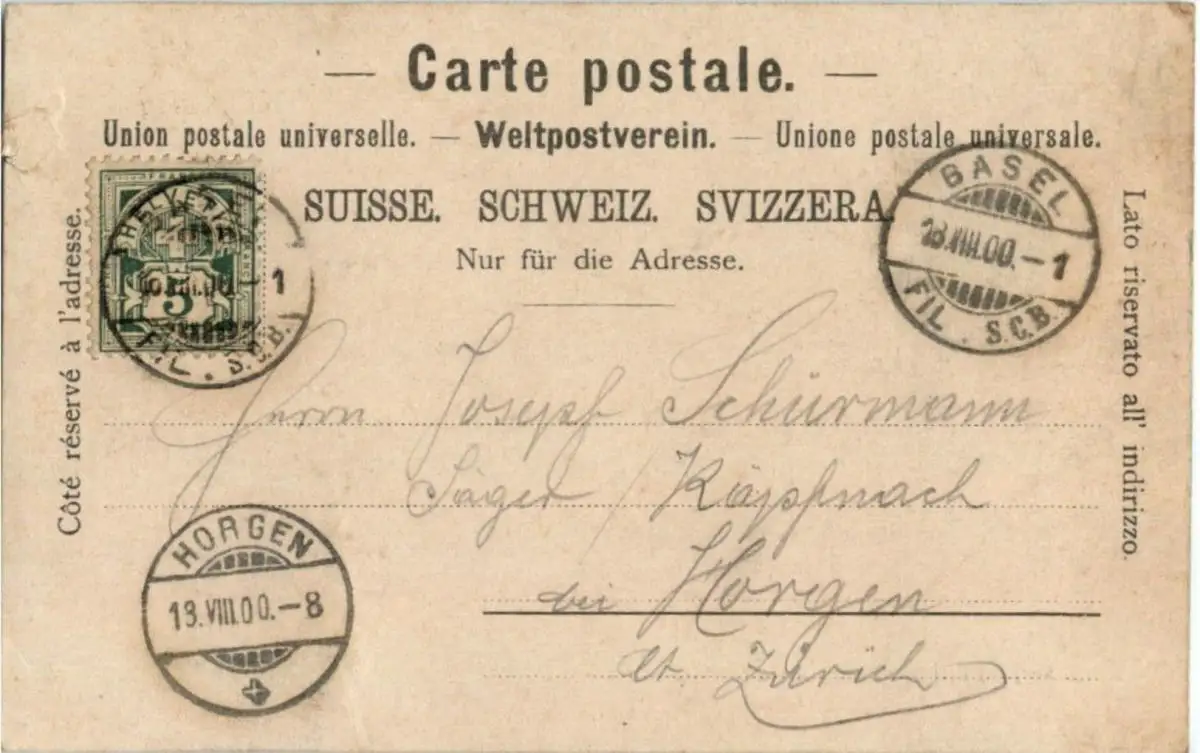 — Carte postale. —
Union postale universelle. — Weltpostverein. — Unione postale universale.
SUISSE. SCHWEIZ. SVIZZERA.
Nur für die Adresse.
Côté réservé à l'adresse.
Lato riservato all' indirizzo.
HELVETIA
FRANCO
5
1
FIL. S.C.B.
BASEL
VIII.00.-1
FIL. S.C.B.
Herrn Josepf Schürmann
Jäger / Käpfnach
bei Horgen
Ct. Zürich
HORGEN
13.VIII.00.-8